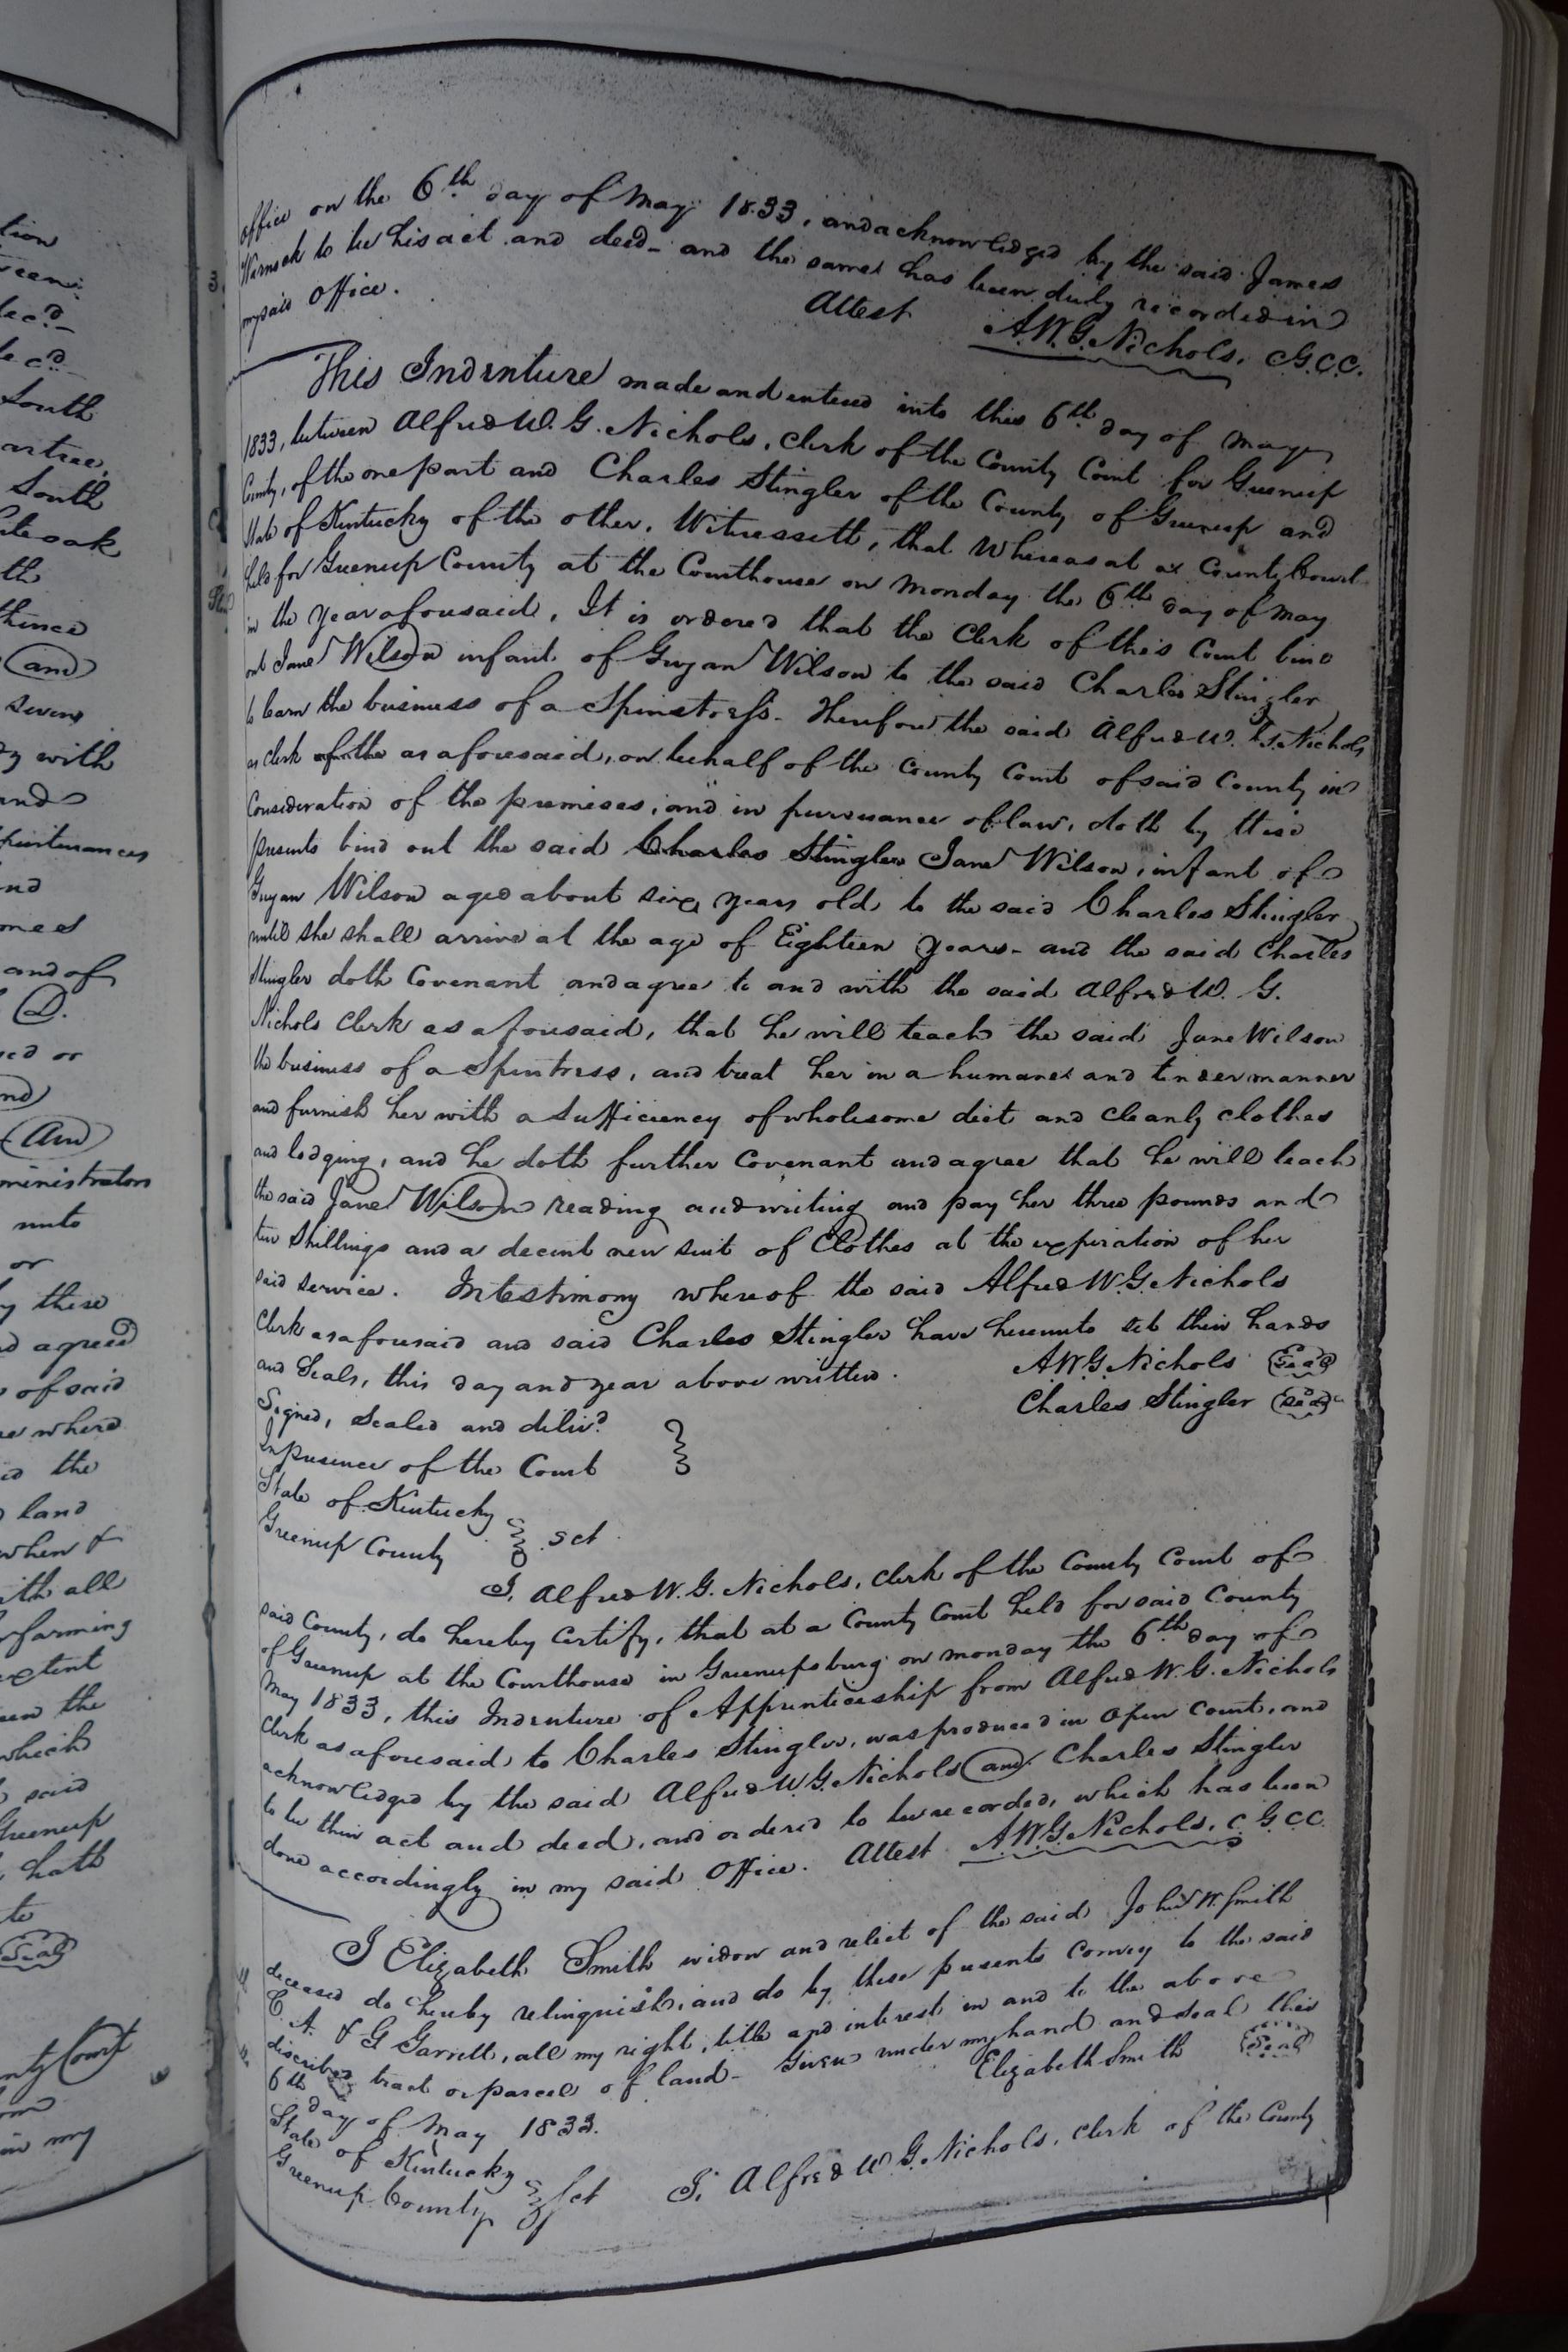 tion
South
South
oak
th
thence
(and)
seven
with
and
appurtenances
and
and of
D.
or
(And)
ministrators
unto
or
these
agreed
of said
where
the
land
when &
with all
farming
extent
the
which
said
Greenup
hath
to
Seal
Court
in my
office on the 6th day of May 1833, and acknowledged by the said James
Warnock to be his act and deed - and the same has been duly recorded in
my said office.
Attest A.W.G. Nichols, C.G.C.C.
This Indenture made and entered into this 6th day of May
1833, between Alfred W. G. Nichols, Clerk of the County Court for Greenup
County, of the one part and Charles Stingler of the County of Greenup and
State of Kentucky of the other, Witnesseth, that Whereas at a County Court
held for Greenup County at the Courthouse on Monday the 6th day of May
in the year aforesaid, It is ordered that the Clerk of this Court bind
out Jane Wilson infant of Guyan Wilson to the said Charles Stingler
to learn the business of a Spinstress - Therefore the said Alfred W. G. Nichols
as clerk as aforesaid, on behalf of the County Court of said County in
Consideration of the premises, and in pursuance of law, doth by these
presents bind out the said Charles Stingler Jane Wilson, infant of
Guyan Wilson aged about six years old to the said Charles Stingler
until she shall arrive at the age of Eighteen years - and the said Charles
Stingler doth Covenant and agree to and with the said Alfred W. G.
Nichols Clerk as aforesaid, that he will teach the said Jane Wilson
the business of a Spintress, and treat her in a humane and tender manner
and furnish her with a sufficiency of wholesome diet and cleanly clothes
and lodging, and he doth further Covenant and agree that he will teach
the said Jane Wilson reading and writing and pay her three pounds and
ten Shillings and a decent new suit of Clothes at the expiration of her
said service. In testimony whereof the said Alfred W. G. Nichols
Clerk as aforesaid and said Charles Stingler have hereunto set their hands
and Seals, this day and year above written.
A.W.G. Nichols Seal
Charles Stingler Seal
Signed, Sealed and deliv.d
In presence of the Court
State of Kentucky
Greenup County Sct
I, Alfred W. G. Nichols, Clerk of the County Court of
said County, do hereby Certify, that at a County Court held for said County
of Greenup at the Courthouse in Greenupsburg on monday the 6th day of
May 1833, this Indenture of Apprenticeship from Alfred W. G. Nichols
Clerk as aforesaid to Charles Stingler, was produced in Open Court, and
acknowledged by the said Alfred W. G. Nichols and Charles Stingler
to be their act and deed, and ordered to be recorded, which has been
done accordingly in my said Office. Attest A.W.G. Nichols, C G.C.C.
I Elizabeth Smith widow and relict of the said John W. Smith
deceased do hereby relinquish, and do by these presents Convey to the said
C. A. & G Garrett, all my right, title and interest in and to the above
described tract or parcel of land - Given under my hand and seal this
6th day of May 1833.
Elizabeth Smith Seal
State of Kentucky
Greenup County Sct I, Alfred W G. Nichols, Clerk of the County